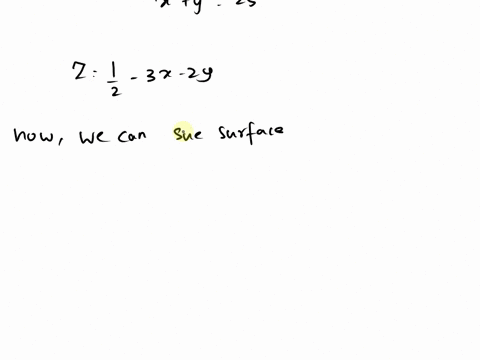 Z = 1/2 - 3x - 2y
now, we can sue surface